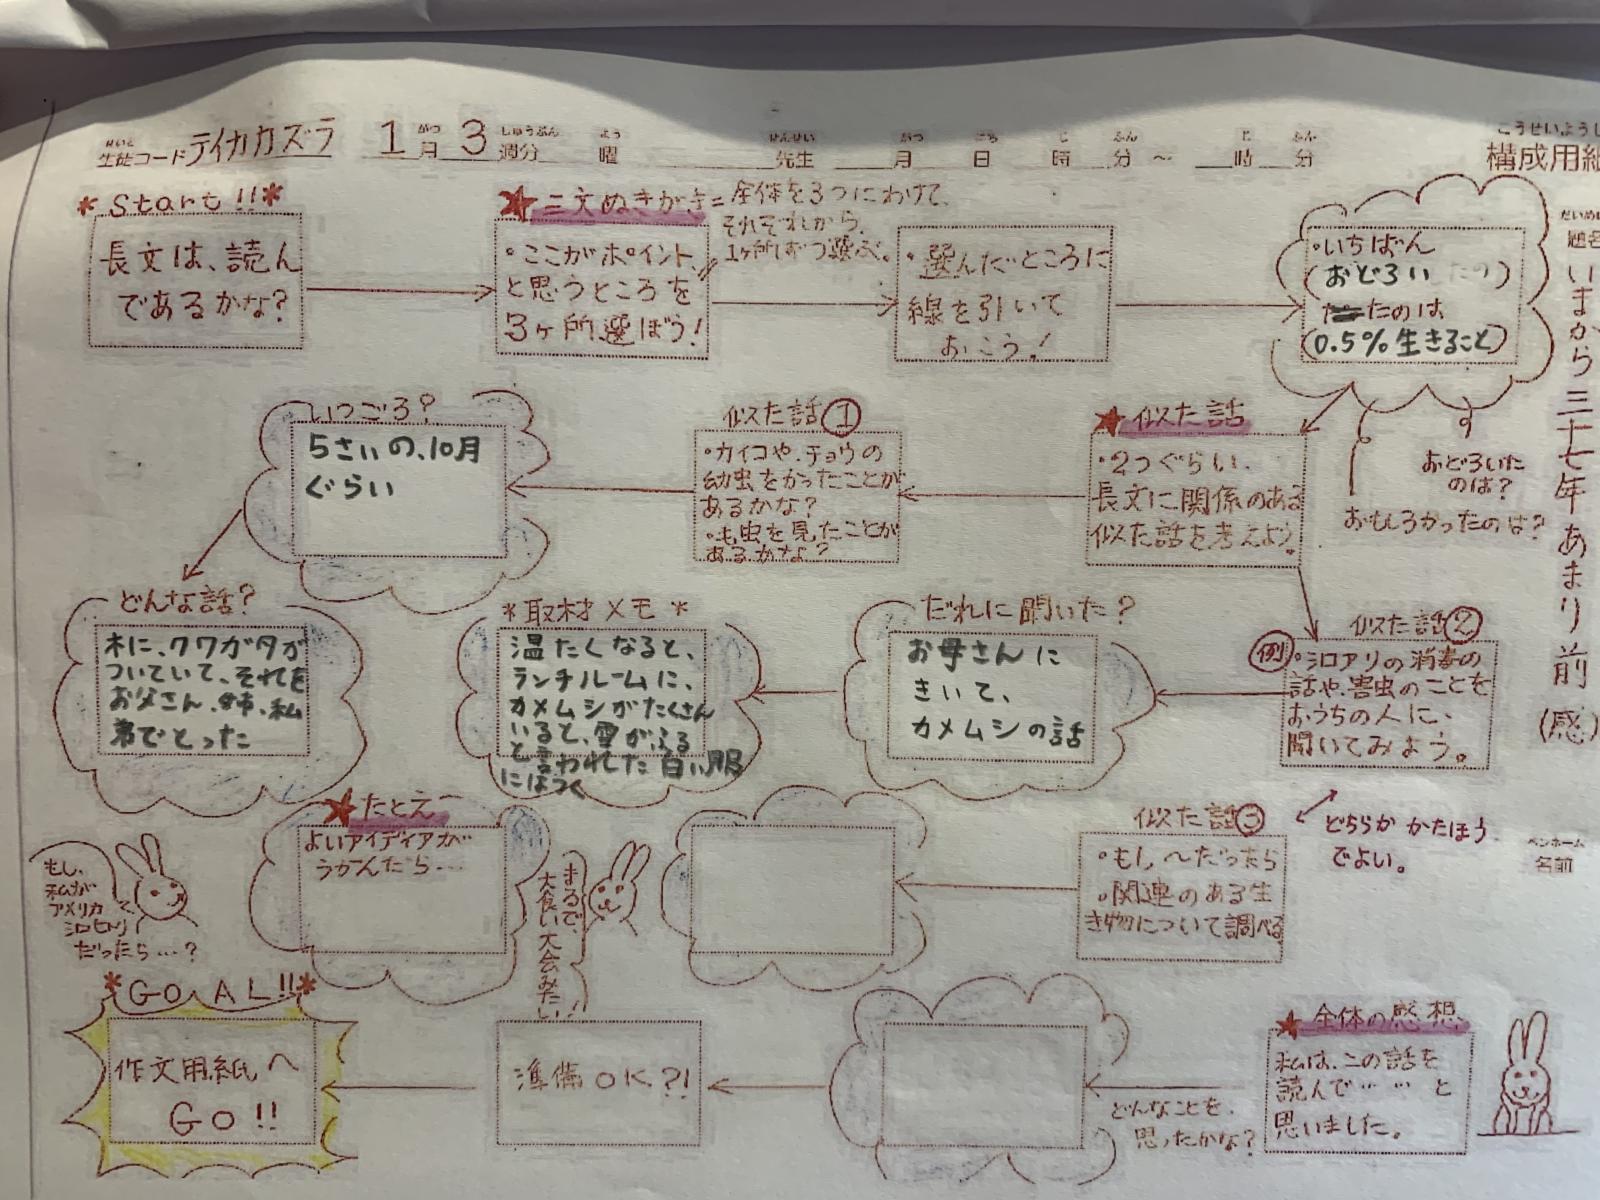 せいと がつ しゅうぶん よう せんせい がつ にち じ ふん じ ふん
生徒コード テイカカズラ 1月 3週分 曜 先生 月 日 時 分 ～ 時 分
こうせいようし
構成用紙
だいめい
題名
いまから三十七年あまり前(感)
ペンネーム
名前
*Start!!*
長文は、読んであるかな?
長文は、読ん
であるかな?
★三文ぬきがき=全体を3つにわけて、
それぞれから、
1ヶ所ずつ選ぶ。
・ここがポイント、
と思うところを
3ヶ所選ぼう!
・選んだところに
線を引いて
おこう!
・いちばん
(おどろい たの)
たのは
(0.5%生きること)
おどろいた
のは?
おもしろかったのは?
★似た話
・2つぐらい、
長文に関係のある
似た話を考えよう。
似た話①
・カイコや、チョウの
幼虫をかったことが
あるかな?
・も虫を見たことが
あるかな?
いつごろ?
5さいの、10月
ぐらい
どんな話?
木に、クワガタが
ついていて、それを
お父さん、姉、私
弟でとった
似た話②
例・シロアリの消毒の
話や、害虫のことを
おうちの人に、
聞いてみよう。
だれに聞いた?
お母さんに
きいて、
カメムシの話
*取材メモ*
温たくなると、
ランチルームに、
カメムシがたくさん
いると、雪がふる
と言われた 白い服
にはつく
どちらか かたほう
でよい。
似た話③
・もし～だったら
・関連のある生
き物について調べる
★たとえ
よいアイディアが
うかんだら…
まるで、
大食い大会みたい
もし、
私が
アメリカ
シロヒトリ
だったら…?
★全体の感想
私は、この話を
読んで……と
思いました。
どんなことを、
思ったかな?
準備OK?!
*GOAL!!*
作文用紙へ
GO!!